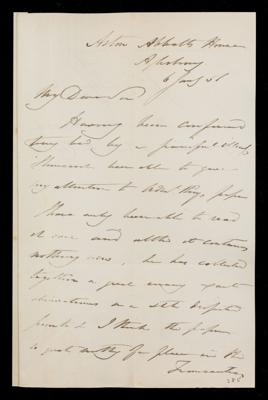 Aston Abbotts House
Aylesbury
6 Jany 56
My Dear Sir
Having been confined
to my bed by a painful
I have not been able to give
my attention to paper
I have only been able to read
it once and altho it contains
nothing new, he has collected
together a great many
observations on a still disputed
point & I think the paper
is quite worthy of a place in the
Transactions
285